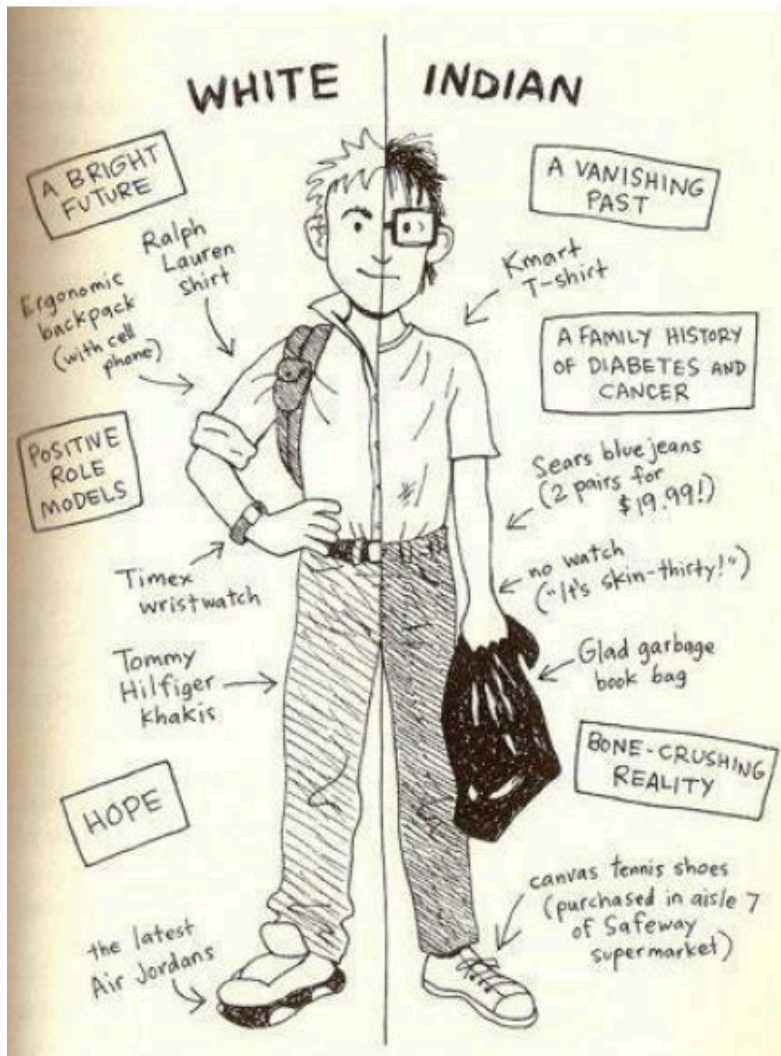 WHITE
INDIAN
A BRIGHT
FUTURE
Ralph
Lauren
Shirt
Ergonomic
backpack
(with cell
phone)
POSITIVE
ROLE
MODELS
Timex
wristwatch
Tommy
Hilfiger
khakis
HOPE
the latest
Air Jordans
A VANISHING
PAST
Kmart
T-shirt
A FAMILY HISTORY
OF DIABETES AND
CANCER
Sears blue jeans
(2 pairs for
$19.99!)
no watch
("It's skin-thirty!")
Glad garbage
book bag
BONE-CRUSHING
REALITY
canvas tennis shoes
(purchased in aisle 7
of Safeway
supermarket)